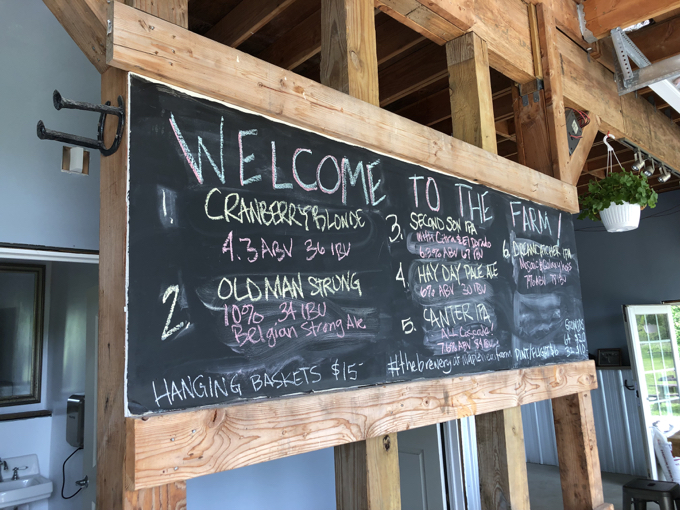 WELCOME TO THE FARM!
1. CRANBERRY BLONDE
4.3 ABV 36 IBU
2. OLD MAN STRONG
10% 34 IBU
Belgian Strong Ale
3. SECOND SON IPA
with Citra & El Dorado
6.3% ABV 67 IBU
4. HAY DAY PALE ALE
6% ABV 30 IBU
5. CANTER IPA
ALL Cascade
7.6% ABV
6. IPA
HANGING BASKETS $15-
#thebreweryatmapleviewfarm
PINT/FLIGHT $6